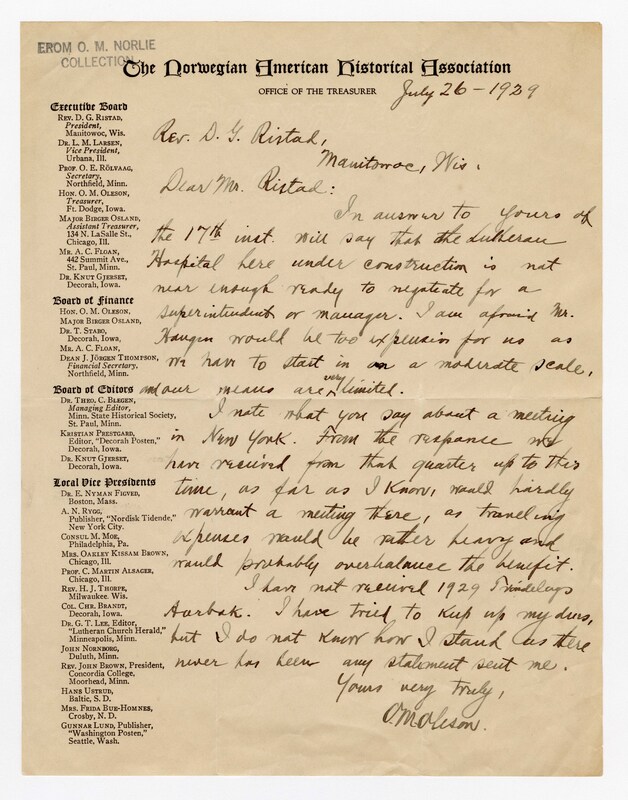 FROM O. M. NORLIE
COLLECTION
The Norwegian American Historical Association
OFFICE OF THE TREASURER
July 26 - 1929
Executive Board
REV. D. G. RISTAD,
President,
Manitowoc, Wis.
DR. L. M. LARSEN,
Vice President,
Urbana, Ill.
PROF. O. E. RÖLVAAG,
Secretary,
Northfield, Minn.
HON. O. M. OLESON,
Treasurer,
Ft. Dodge, Iowa.
MAJOR BIRGER OSLAND,
Assistant Treasurer,
134 N. LaSalle St.,
Chicago, Ill.
MR. A. C. FLOAN,
442 Summit Ave.,
St. Paul, Minn.
DR. KNUT GJERSET,
Decorah, Iowa.
Board of Finance
HON. O. M. OLESON,
MAJOR BIRGER OSLAND,
DR. T. STABO,
Decorah, Iowa,
MR. A. C. FLOAN,
DEAN J. JÖRGEN THOMPSON,
Financial Secretary,
Northfield, Minn.
Board of Editors
DR. THEO. C. BLEGEN,
Managing Editor,
Minn. State Historical Society,
St. Paul, Minn.
KRISTIAN PRESTGARD,
Editor, "Decorah Posten,"
Decorah, Iowa.
DR. KNUT GJERSET,
Decorah, Iowa.
Local Vice Presidents
DR. E. NYMAN FIGVED,
Boston, Mass.
A. N. RYGG,
Publisher, "Nordisk Tidende,"
New York City.
CONSUL M. MOE,
Philadelphia, Pa.
MRS. OAKLEY KISSAM BROWN,
Chicago, Ill.
PROF. C. MARTIN ALSAGER,
Chicago, Ill.
REV. H. J. THORPE,
Milwaukee. Wis.
COL. CHR. BRANDT,
Decorah, Iowa.
DR. G. T. LEE, Editor,
"Lutheran Church Herald,"
Minneapolis, Minn.
JOHN NORNBORG,
Duluth, Minn.
REV. JOHN BROWN, President,
Concordia College,
Moorhead, Minn.
HANS USTRUD,
Baltic, S. D.
MRS. FRIDA BUE-HOMNES,
Crosby, N. D.
GUNNAR LUND, Publisher,
"Washington Posten,"
Seattle, Wash.
Rev. D. G. Ristad,
Manitowoc, Wis.
Dear Mr. Ristad:
In answer to yours of
the 17th inst. will say that the Lutheran
Hospital here under construction is not
near enough ready to negotiate for a
superintendent or manager. I am afraid Mr.
Haugen would be too expensive for us as
we have to start in on a moderate scale,
and our means are very limited.
I note what you say about a meeting
in New York. From the response we
have received from that quarter up to this
time, as far as I know, would hardly
warrant a meeting there, as traveling
expenses would be rather heavy and
would probably overbalance the benefit.
I have not received 1929
Aarbok. I have tried to keep up my dues,
but I do not know how I stand as there
never has been any statement sent me.
Yours very truly,
O.M. Oleson.